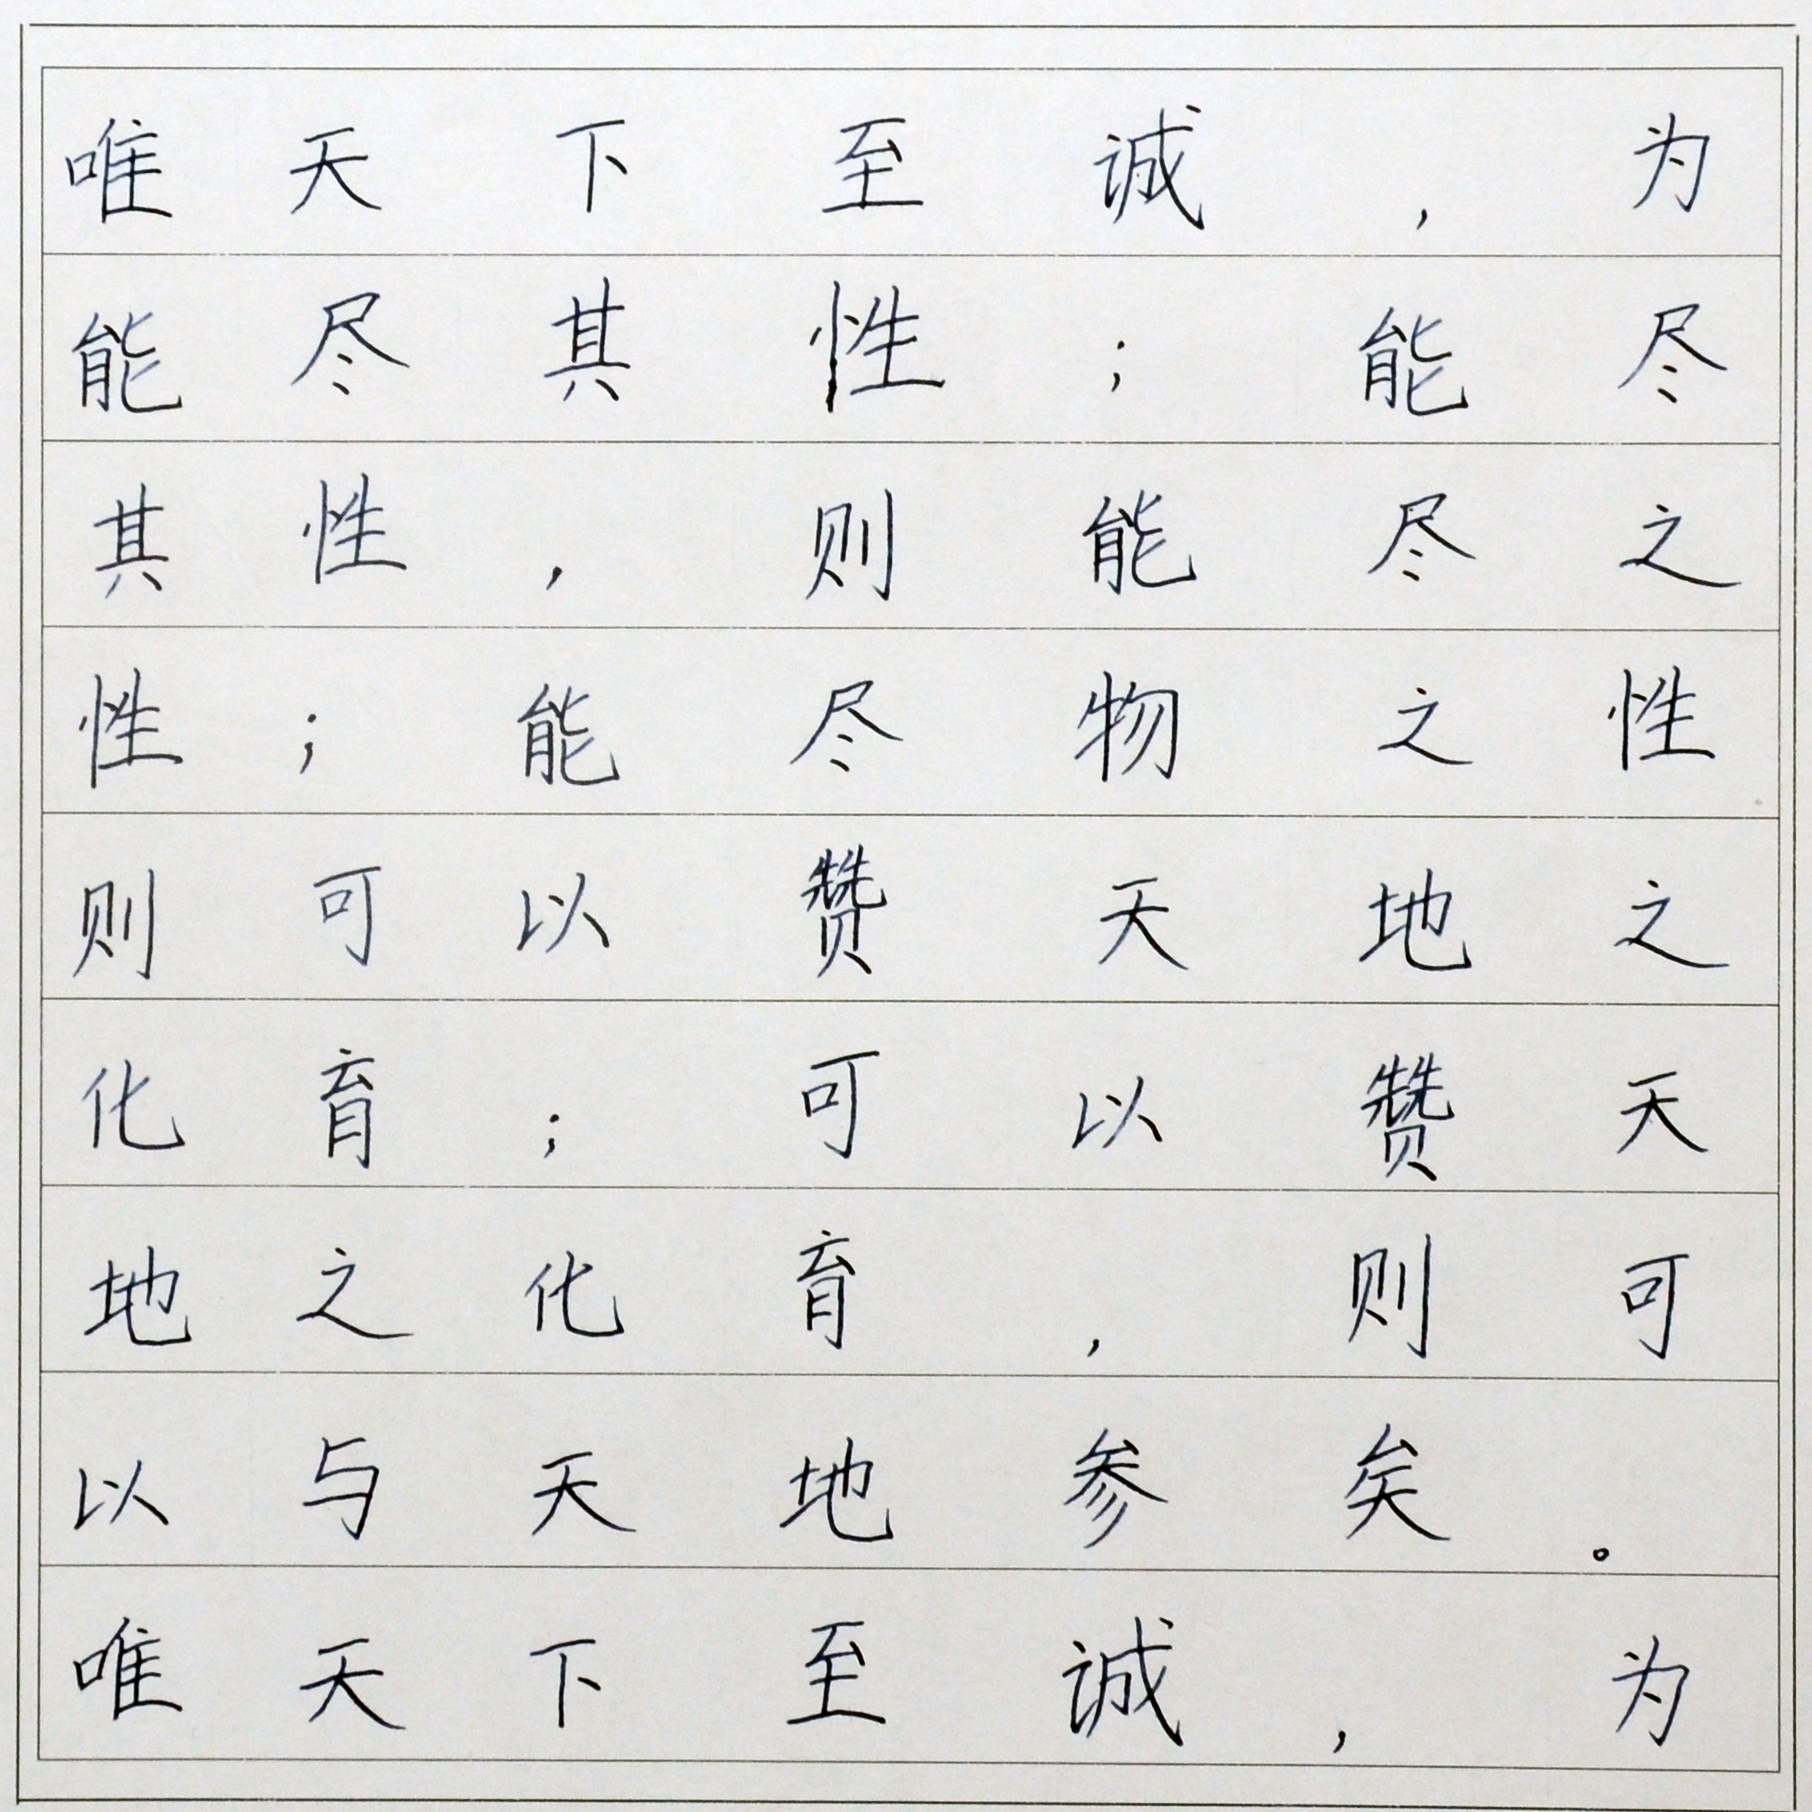 唯天下至诚，为
能尽其性；能尽
其性，则能尽之
性；能尽物之性
则可以赞天地之
化育；可以赞天
地之化育，则可
以与天地参矣。
唯天下至诚，为